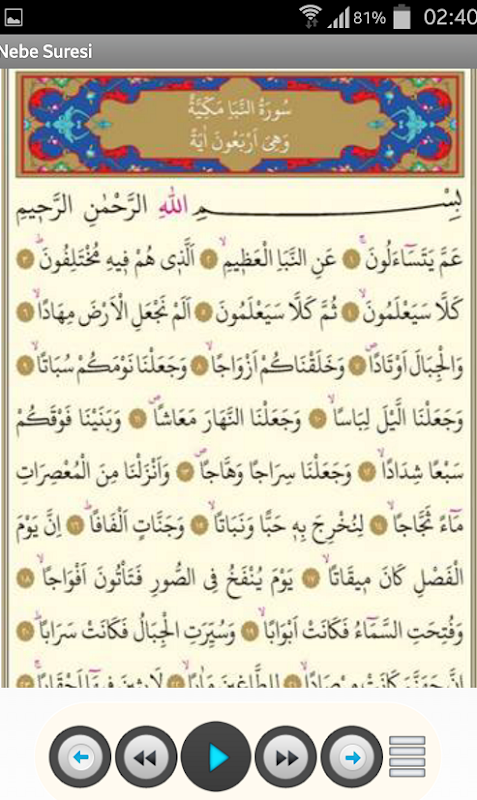 81% 02:40
Nebe Suresi
سُورَةُ النَّبَأِ مَكِّيَّةٌ
وَهِيَ اَرْبَعُونَ اٰيَةً
بِسْمِ اللّٰهِ الرَّحْمٰنِ الرَّح۪يمِ
عَمَّ يَتَسَٓاءَلُونَۚ ﴿١﴾ عَنِ النَّبَأِ الْعَظ۪يمِۙ ﴿٢﴾ اَلَّذ۪ي هُمْ ف۪يهِ مُخْتَلِفُونَۜ ﴿٣﴾
كَلَّا سَيَعْلَمُونَۙ ﴿٤﴾ ثُمَّ كَلَّا سَيَعْلَمُونَ ﴿٥﴾ اَلَمْ نَجْعَلِ الْاَرْضَ مِهَادًاۙ ﴿٦﴾
وَالْجِبَالَ اَوْتَادًاۖ ﴿٧﴾ وَخَلَقْنَاكُمْ اَزْوَاجًاۙ ﴿٨﴾ وَجَعَلْنَا نَوْمَكُمْ سُبَاتًاۙ ﴿٩﴾
وَجَعَلْنَا الَّيْلَ لِبَاسًاۙ ﴿١٠﴾ وَجَعَلْنَا النَّهَارَ مَعَاشًاۖ ﴿١١﴾ وَبَنَيْنَا فَوْقَكُمْ
سَبْعًا شِدَادًاۙ ﴿١٢﴾ وَجَعَلْنَا سِرَاجًا وَهَّاجًاۖ ﴿١٣﴾ وَاَنْزَلْنَا مِنَ الْمُعْصِرَاتِ
مَٓاءً ثَجَّاجًاۙ ﴿١٤﴾ لِنُخْرِجَ بِه۪ حَبًّا وَنَبَاتًاۙ ﴿١٥﴾ وَجَنَّاتٍ اَلْفَافًاۜ ﴿١٦﴾ اِنَّ يَوْمَ
الْفَصْلِ كَانَ م۪يقَاتًاۙ ﴿١٧﴾ يَوْمَ يُنْفَخُ فِي الصُّورِ فَتَأْتُونَ اَفْوَاجًاۙ ﴿١٨﴾
وَفُتِحَتِ السَّمَٓاءُ فَكَانَتْ اَبْوَابًاۙ ﴿١٩﴾ وَسُيِّرَتِ الْجِبَالُ فَكَانَتْ سَرَابًاۜ ﴿٢٠﴾
اِنَّ جَهَنَّمَ كَانَتْ مِرْصَادًاۙ ﴿٢١﴾ لِلطَّاغ۪ينَ مَاٰبًاۙ ﴿٢٢﴾ لَابِث۪ينَ ف۪يهَٓا اَحْقَابًاۚ ﴿٢٣﴾